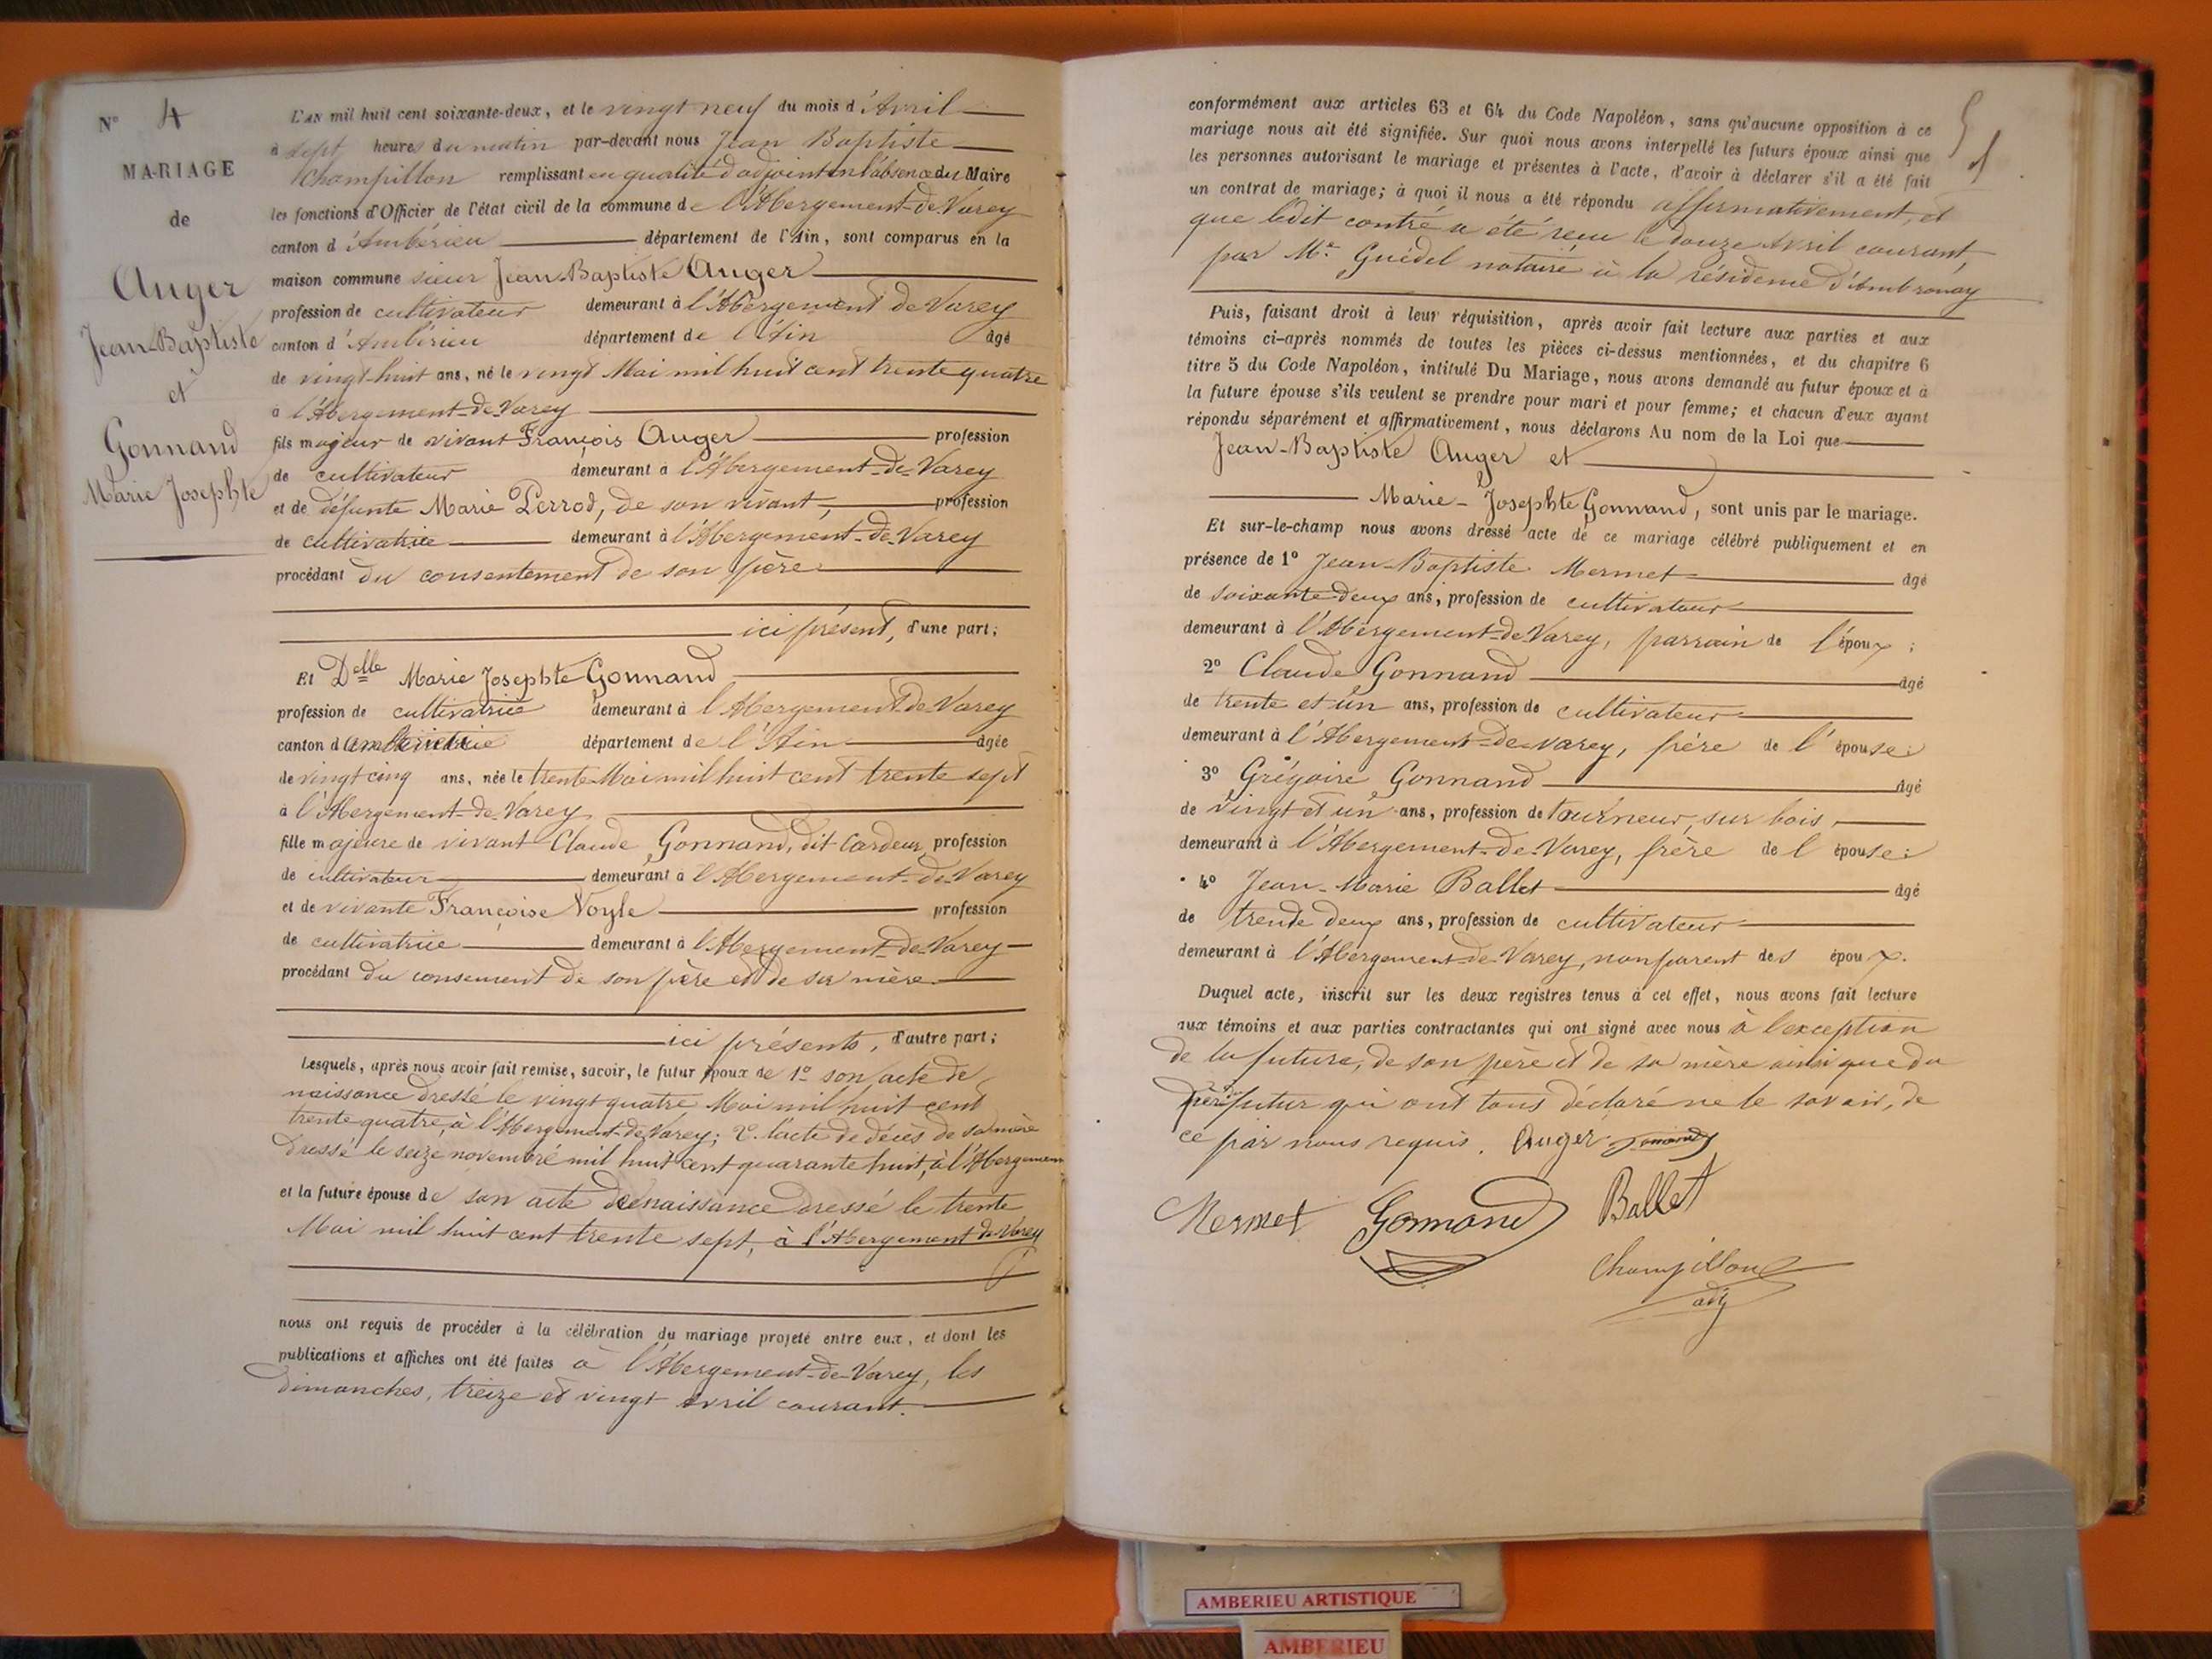 N° 4
MARIAGE
de
Auger
Jean-Baptiste
et
Gonnand
Marie Josephte
L'AN mil huit cent soixante-deux, et le vingt neuf du mois d'Avril
à sept heures du matin par-devant nous Jean Baptiste
Champillon remplissant en qualité d'adjoint en l'absence du Maire
les fonctions d'Officier de l'état civil de la commune de l'Abergement-de-Varey
canton d'Ambérieu département de l'Ain, sont comparus en la
maison commune sieur Jean-Baptiste Auger
profession de cultivateur demeurant à l'Abergement de Varey
canton d'Ambérieu département de l'Ain âgé
de vingt-huit ans, né le vingt Mai mil huit cent trente quatre
à l'Abergement-de-Varey
fils majeur de vivant François Auger profession
de cultivateur demeurant à l'Abergement-de-Varey
et de défunte Marie Perrod, de son vivant, profession
de cultivatrice demeurant à l'Abergement-de-Varey
procédant du consentement de son père
ici présent, d'une part;
Et Delle Marie Josephte Gonnand
profession de cultivatrice demeurant à l'Abergement de Varey
canton d département de l'Ain âgée
de vingt cinq ans, née le trente Mai mil huit cent trente sept
à l'Abergement-de-Varey
fille majeure de vivant Claude Gonnand, dit Cardeur profession
de cultivateur demeurant à l'Abergement-de-Varey
et de vivante Françoise Noyle profession
de cultivatrice demeurant à l'Abergement-de-Varey
procédant du consement de son père et de sa mère
ici présents, d'autre part;
Lesquels, après nous avoir fait remise, savoir, le futur époux de 1° son acte de
naissance dressé le vingt quatre Mai mil huit cent
trente quatre, à l'Abergement-de-Varey; 2° l'acte de décès de sa mère
dressé le seize novembre mil huit cent quarante huit, à l'Abergement
et la future épouse de son acte de naissance dressé le trente
Mai mil huit cent trente sept, à l'Abergement de Varey
nous ont requis de procéder à la célébration du mariage projeté entre eux, et dont les
publications et affiches ont été faites à l'Abergement-de-Varey, les
dimanches, treize et vingt avril courant.
5
conformément aux articles 63 et 64 du Code Napoléon, sans qu'aucune opposition à ce
mariage nous ait été signifiée. Sur quoi nous avons interpellé les futurs époux ainsi que
les personnes autorisant le mariage et présentes à l'acte, d'avoir à déclarer s'il a été fait
un contrat de mariage; à quoi il nous a été répondu affirmativement, et
que ledit contré a été reçu le douze Avril courant,
par Me. Guédel notaire à la résidence d'Ambronay
Puis, faisant droit à leur réquisition, après avoir fait lecture aux parties et aux
témoins ci-après nommés de toutes les pièces ci-dessus mentionnées, et du chapitre 6
titre 5 du Code Napoléon, intitulé Du Mariage, nous avons demandé au futur époux et à
la future épouse s'ils veulent se prendre pour mari et pour femme; et chacun d'eux ayant
répondu séparément et affirmativement, nous déclarons Au nom de la Loi que
Jean-Baptiste Auger et
Marie-Josephte Gonnand, sont unis par le mariage.
Et sur-le-champ nous avons dressé acte de ce mariage célébré publiquement et en
présence de 1° Jean-Baptiste Mermet âgé
de soixante-deux ans, profession de cultivateur
demeurant à l'Abergement-de-Varey, parrain de l'époux;
2° Claude Gonnand âgé
de trente et un ans, profession de cultivateur
demeurant à l'Abergement-de-Varey, frère de l'épouse;
3° Grégoire Gonnand âgé
de vingt et un ans, profession de tourneur, sur bois,
demeurant à l'Abergement-de-Varey, frère de l'épouse;
4° Jean-Marie Ballet âgé
de trente deux ans, profession de cultivateur
demeurant à l'Abergement-de-Varey, non parent des époux.
Duquel acte, inscrit sur les deux registres tenus à cet effet, nous avons fait lecture
aux témoins et aux parties contractantes qui ont signé avec nous à l'exception
de la future, de son père et de sa mère ainsi que du
père futur qui ont tous déclaré ne le savoir, de
ce par nous requis. Auger Gonnand
Mermet Gonnand Ballet
Champillon
adj
AMBERIEU ARTISTIQUE
AMBERIEU